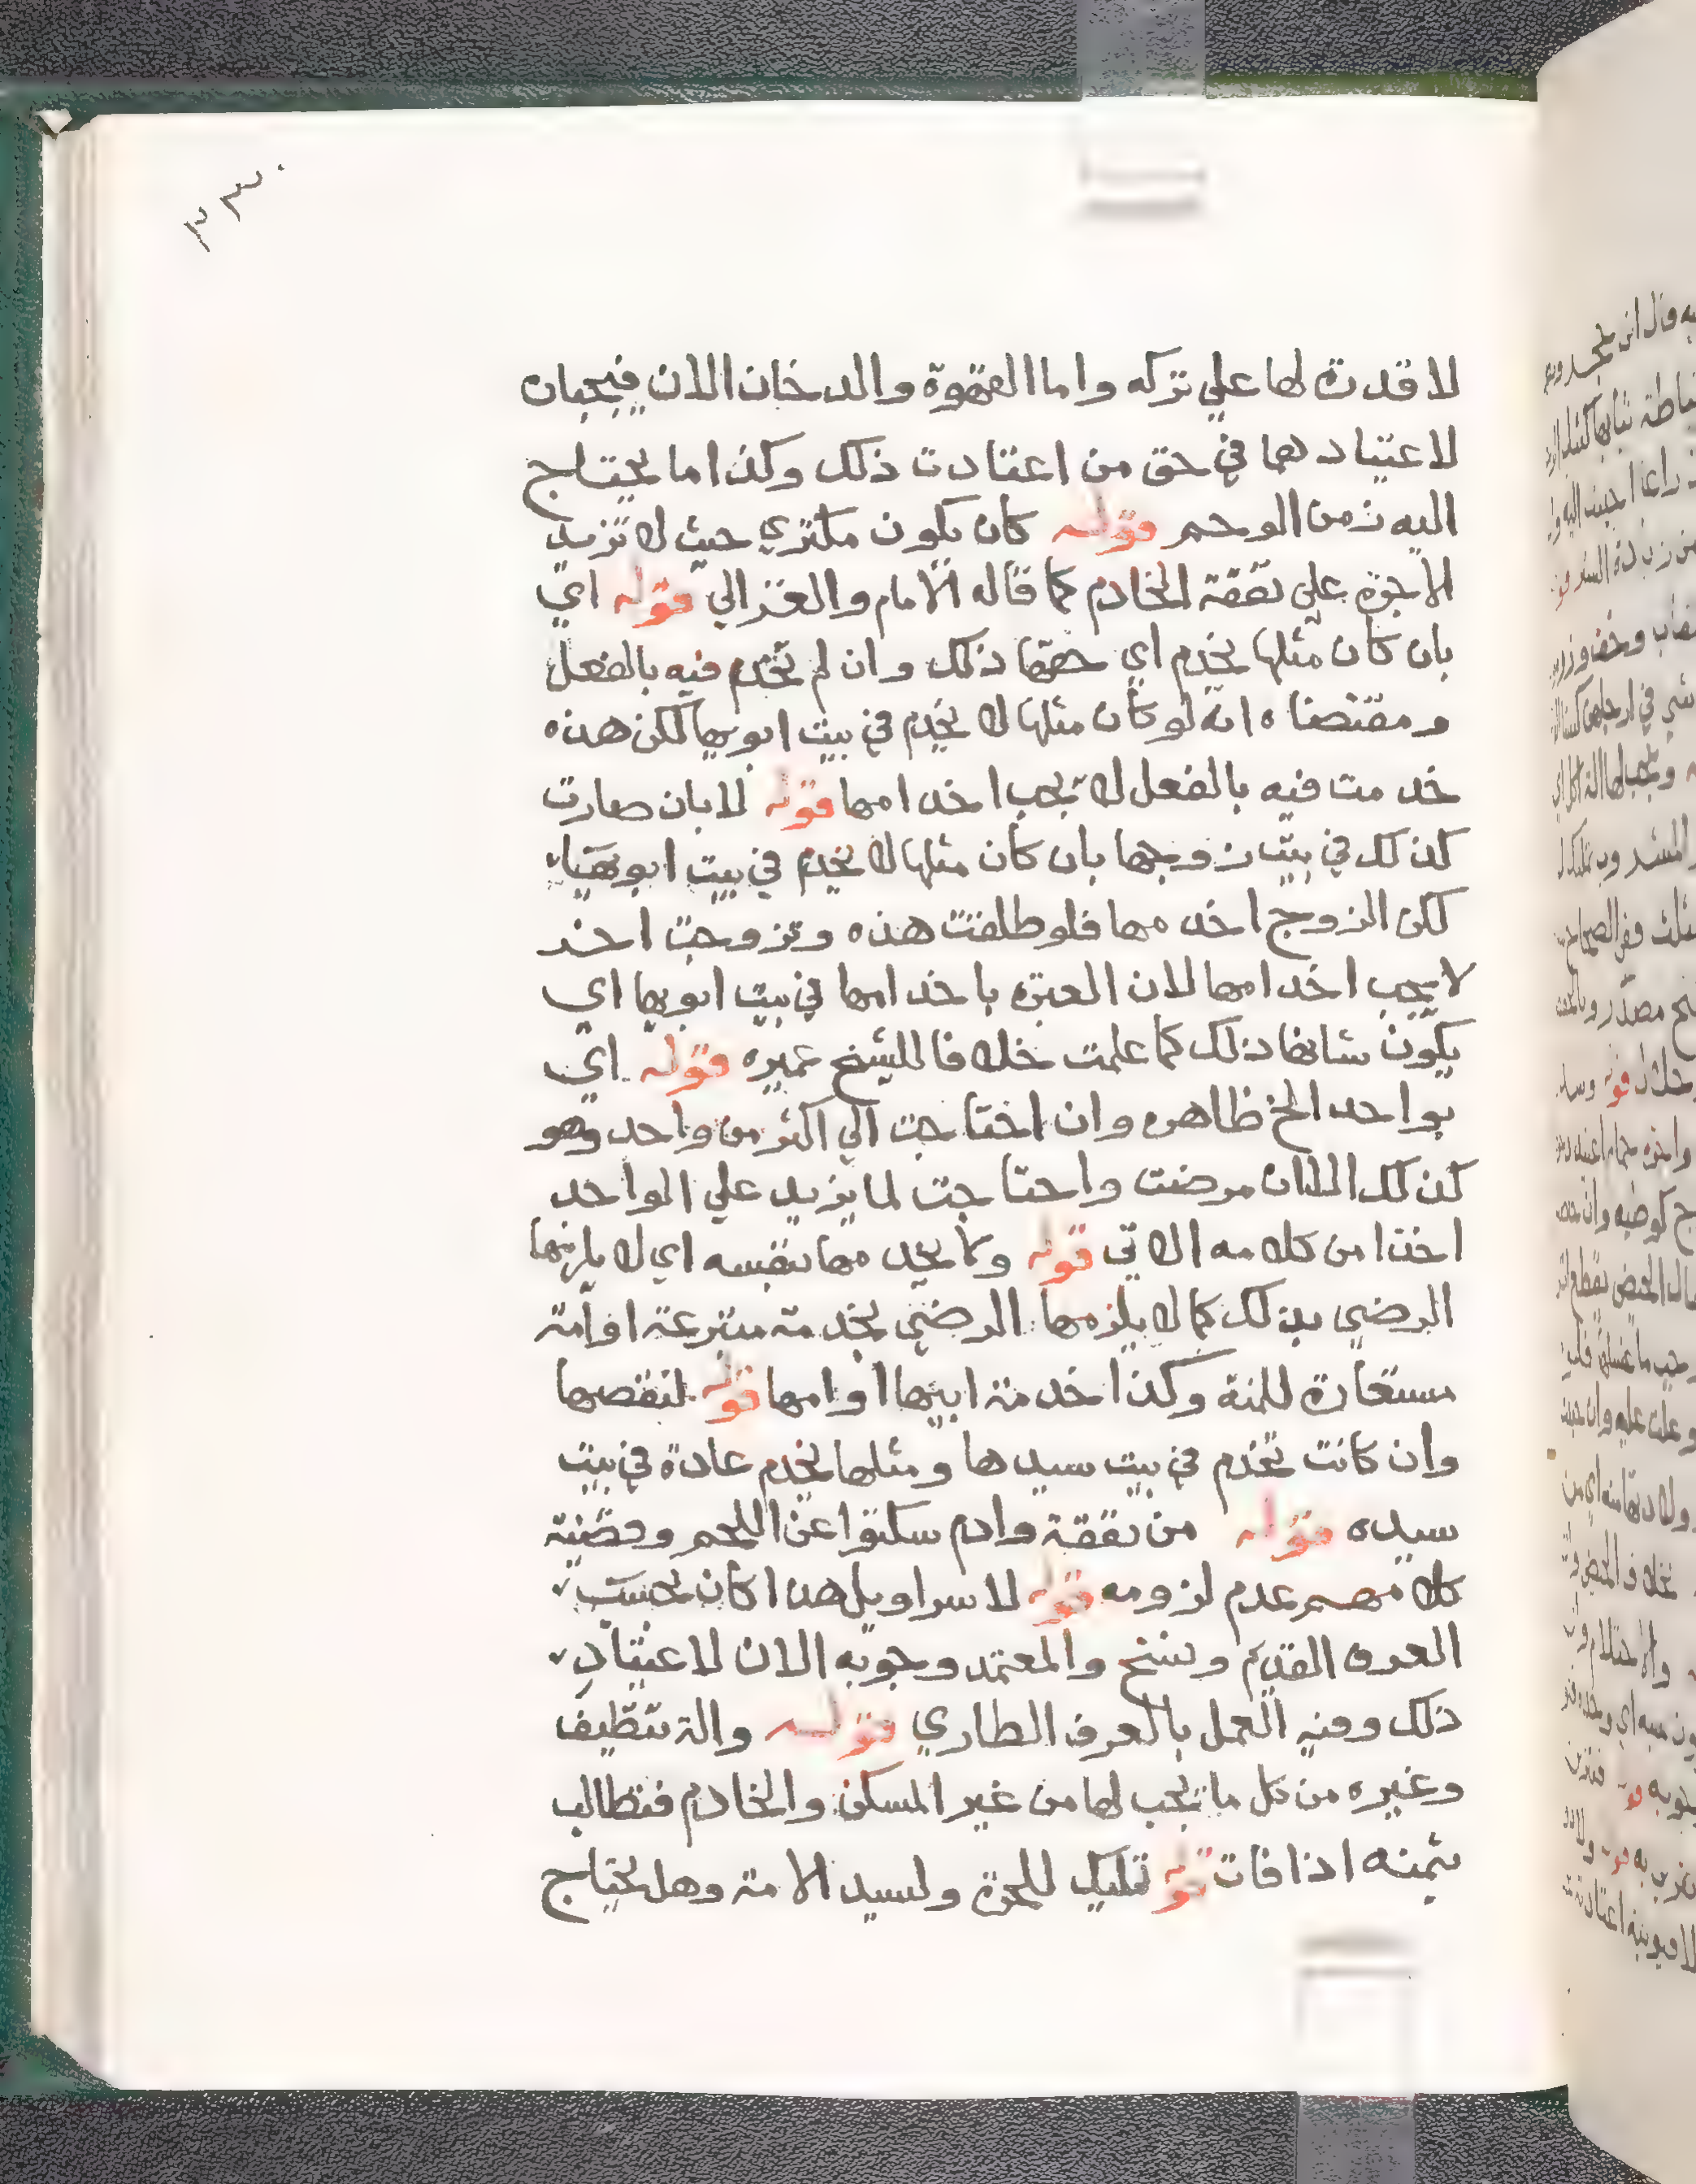 ٢٣٠
لا قدرة لها علي تركه واما القهوة والدخان الان فيجبان
لاعتيادهما في حق من اعتادت ذلك وكذا ما يحتاج
اليه زمن الوحم قوله كان يكون مكتري حيث لا تزيد
الاجرة علي نفقة الخادم كما قاله الامام والغزالي قوله اي
بان كان مثلها يخدم اي حقها ذلك وان لم تخدم فيه بالفعل
ومقتضاه انه لو كان مثلها لا يخدم في بيت ابويها لكن هذه
خدمت فيه بالفعل لا يجب اخدامها قوله لا بان صارت
كذلك في بيت زوجها بان كان مثلها لا يخدم في بيت ابويها
لكن الزوج اخدمها فلو طلقت هذه وتزوجت اخر
لا يجب اخدامها لان العبرة باخدامها في بيت ابويها اي
يكون شانها ذلك كما علمت خلافا للشيخ عميره قوله اي
بواحد الخ ظاهره وان احتاجت الي اكثر من واحد وهو
كذلك الا ان مرضت واحتاجت لما يزيد علي الواحد
اخذا من كلامه الاتي قوله ولا يخدمها بنفسه اي لا يلزمها
الرضي بذلك كما لا يلزمها الرضي بخدمة متبرعة او امة
مستعارة للمنة وكذا خدمة ابيها او امها قوله لنقصها
وان كانت تخدم في بيت سيدها ومثلها يخدم عادة في بيت
سيده قوله من نفقة وادم سكتوا عن اللحم وقضية
كلامهم عدم لزومه قوله لا سراويل هذا كان بحسب
العرف القديم ونسخ والمعتمد وجوبه الان لاعتياد
ذلك وفيه العمل بالعرف الطاري قوله والة تنظيف
وغيره من كل ما يجب لها من غير المسكن والخادم فتطالب
بثمنه اذا فات قوله تمليك للحرة ولسيد الامة وهل يحتاج